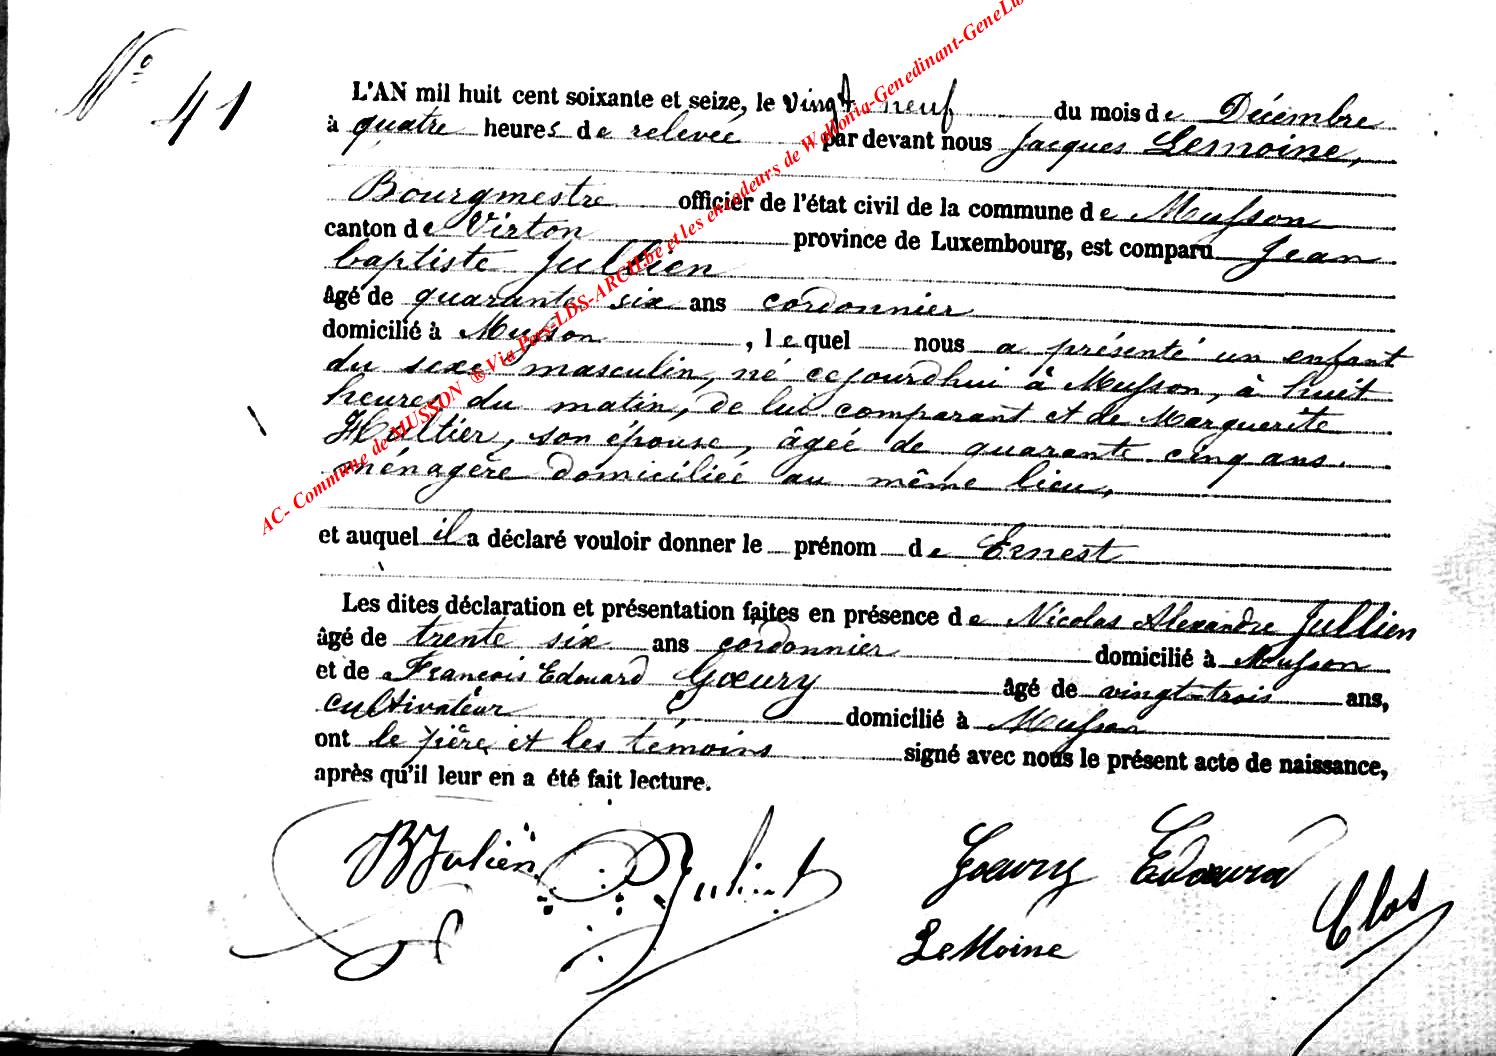 N° 41
L'AN mil huit cent soixante et seize, le vingt neuf du mois de Décembre
à quatre heures de relevée par devant nous Jacques Lemoine,
Bourgmestre officier de l'état civil de la commune de Musson
canton de Virton province de Luxembourg, est comparu Jean
baptiste Jullien
âgé de quarante six ans cordonnier
domicilié à Musson, lequel nous a présenté un enfant
du sexe masculin, né cejourdhui à Musson, à huit
heures du matin, de lui comparant et de Marguerite
son épouse, âgée de quarante cinq ans.
ménagère domiciliée au même lieu,
et auquel il a déclaré vouloir donner le prénom de Ernest
Les dites déclaration et présentation faites en présence de Nicolas Alexandre Jullien
âgé de trente six ans cordonnier domicilié à Musson
et de François Edouard Gœury âgé de vingt-trois ans,
cultivateur domicilié à Musson
ont le père et les témoins signé avec nous le présent acte de naissance,
après qu'il leur en a été fait lecture.
BJulien Goeury Edouard
LeMoine Clos
AC- Commune de MUSSON ® Via Pers-LDS-ARCH.be et les encodeurs de Wallonia-Genedinant-GeneLu